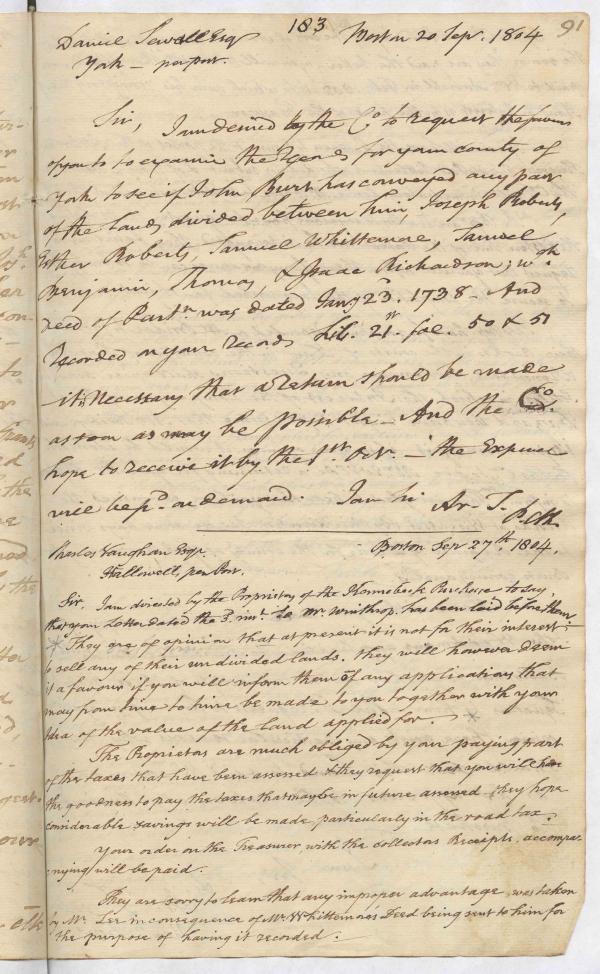 183
91
Daniel Sewall Esqr Boston 20 Sepr. 1804
York — per post.
Sir, I am desired by the Co. to request the favour
of you to to examine the Records for your county of
York to see if John Burt has conveyed any part
of the lands divided between him, Joseph Roberts,
Esther Roberts, Samuel Whittemore, Samuel
Benjamin, Thomas, & Isaac Richardson; wch
deed of Partn. was dated Jany 23d. 1738 — And
Recorded on your records Lib. 21st. fol. 50 & 51
it is necessary that a return should be made
as soon as may be possible — And the Co.
hope to receive it by the 1st Oct. — the Expence
will be pd. on demand. I am Sir
Charles Vaughan Esqr. Boston Sep 27th. 1804.
Hallowell, per Post.
Sir. I am directed by the Proprietors of the Kennebeck Purchase to say,
that your Letter dated the 3. inst. to Mr. Winthrop, has been laid before them
* They are of opinion that at present it is not for their interest
to sell any of their undivided lands. they will however deem
it a favour if you will inform them of any applications that
may from time to time be made to you together with your
Idea of the value of the land applied for. *
The Proprietors are much obliged by your paying part
of the taxes that have been assessed & they request that you will have
the goodness to pay the taxes that may be in future assessed they hope
considerable savings will be made particularly in the road tax.
Your order on the Treasurer with the collectors Receipts, accompa-
nying will be paid.
They are sorry to learn that any improper advantage was taken
by Mr. Lee in consequence of Mr. Whittemore's Deed being sent to him for
the purpose of having it recorded.